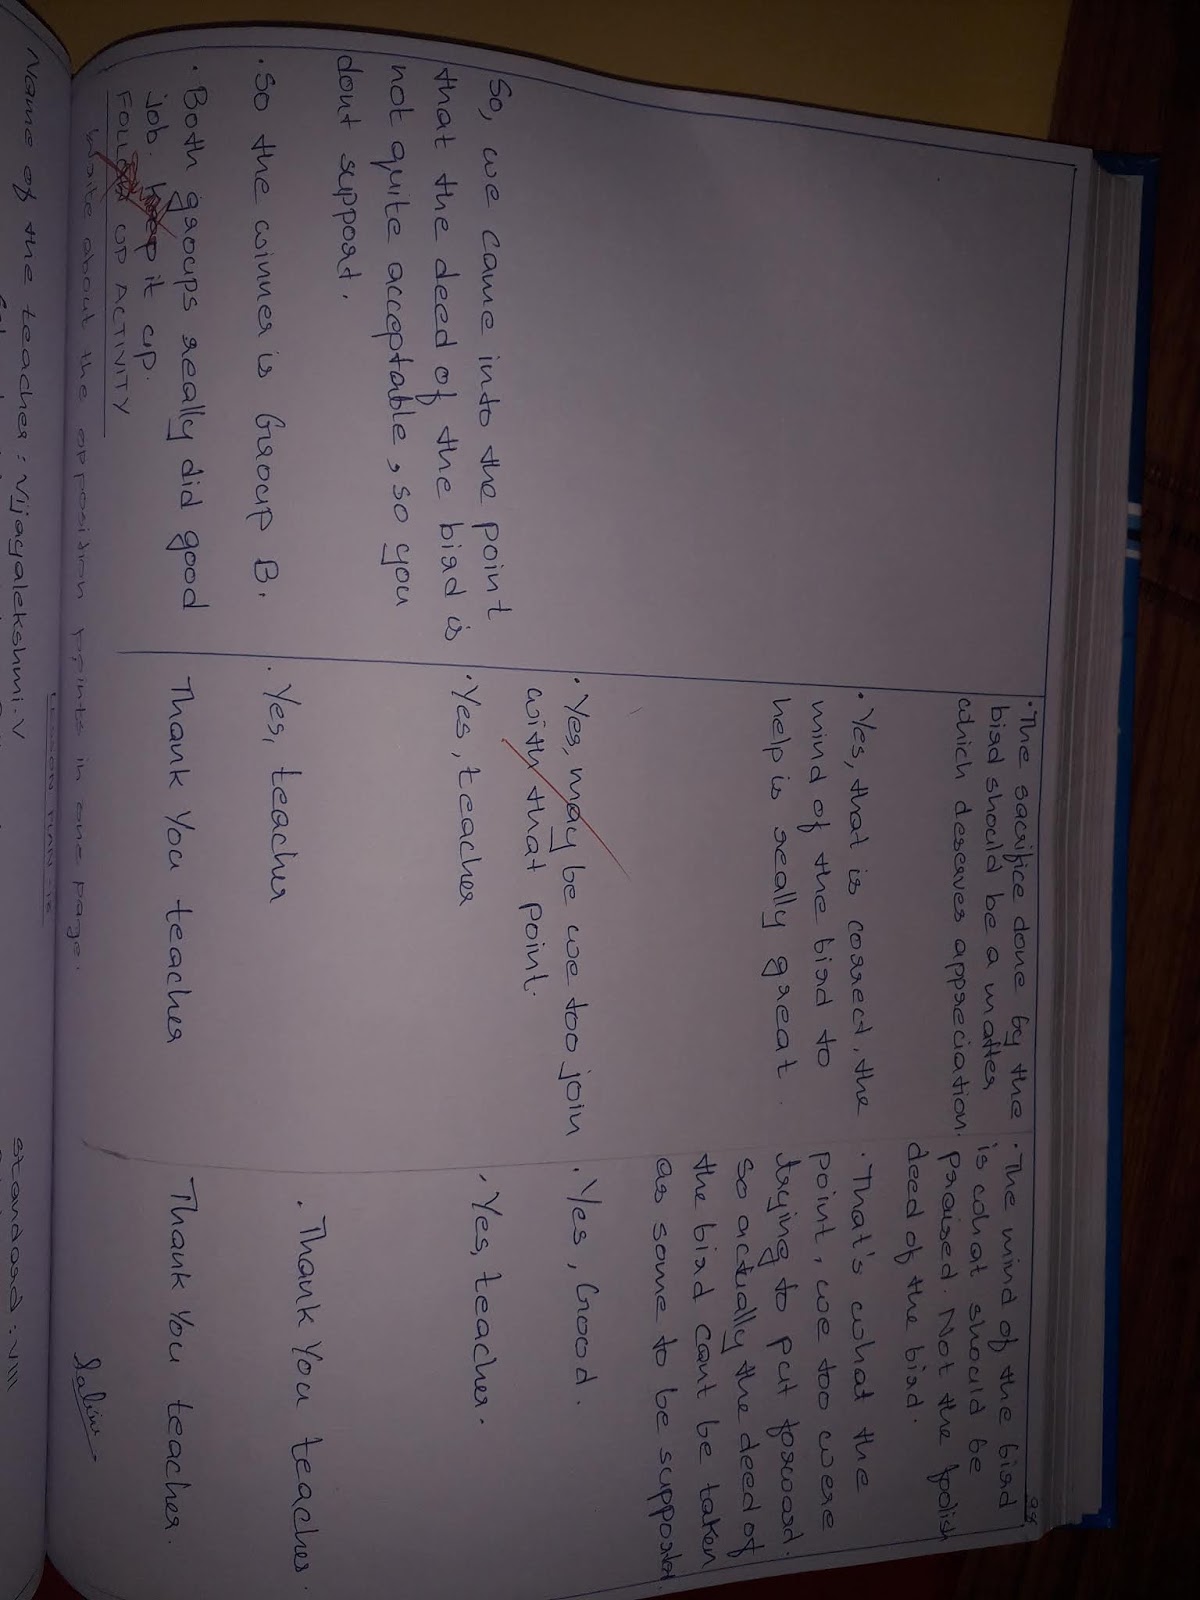 98
· The sacrifice done by the
bird should be a matter
which deserves appreciation.
· The mind of the bird
is what should be
praised. Not the foolish
deed of the bird.
· Yes, that is correct, the
mind of the bird to
help is really great.
· That's what the
point, we too were
trying to put forward.
so actually the deed of
the bird cant be taken
as some to be supported.
So, we came into the point
that the deed of the bird is
not quite acceptable, so you
dont support.
· Yes, may be we too join
with that point.
· Yes, Good.
· Yes, teacher
· Yes, teacher.
· So the winner is Group B.
· Yes, teacher
· Thank You teacher.
· Both groups really did good
job. keep it up.
Thank You teacher
Thank You teacher.
FOLLOW UP ACTIVITY
Write about the opposition points in one page.
LESSON PLAN:
Name of the teacher: Vijayalekshmi.V
Standard: VIII